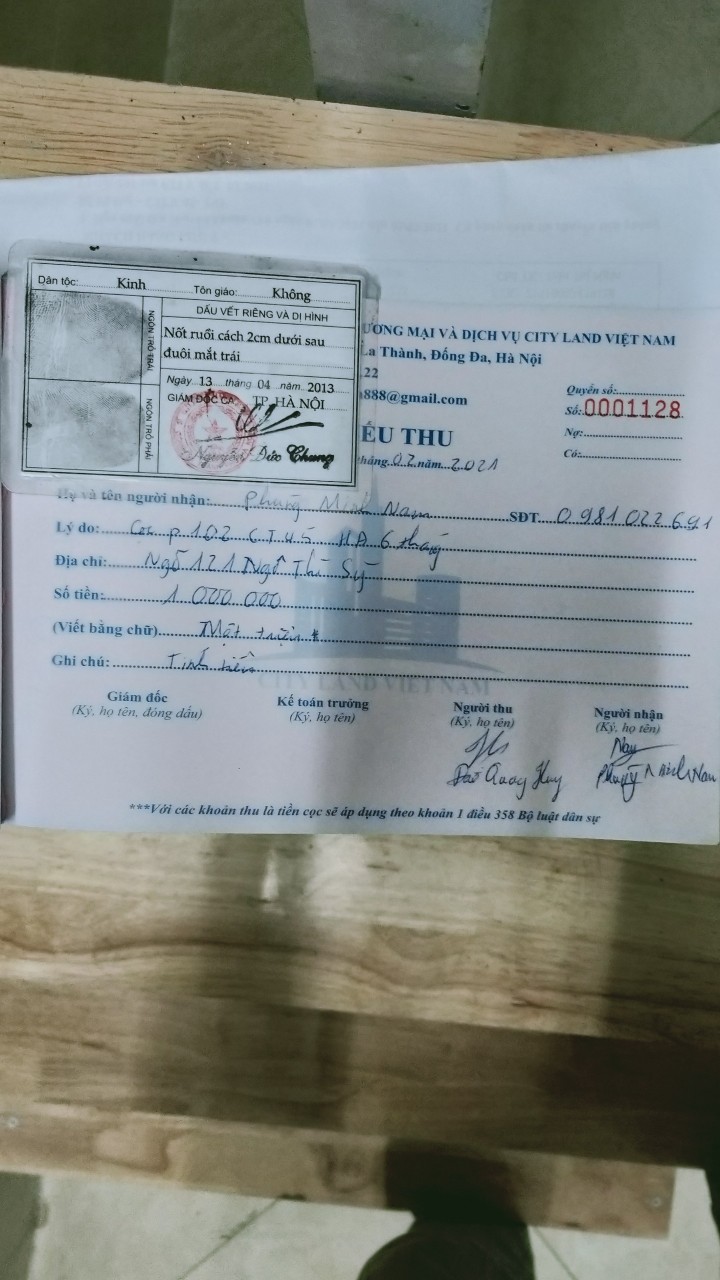 Dân tộc: Kinh Tôn giáo: Không
DẤU VẾT RIÊNG VÀ DỊ HÌNH
NGÓN TRỎ TRÁI
Nốt ruồi cách 2cm dưới sau
đuôi mắt trái
Ngày 13 tháng 04 năm 2013
GIÁM ĐỐC CA TP HÀ NỘI
NGÓN TRỎ PHẢI
Nguyễn Đức Chung
ƯƠNG MẠI VÀ DỊCH VỤ CITY LAND VIỆT NAM
La Thành, Đống Đa, Hà Nội
22
888@gmail.com
Quyển số:
Số: 0001128
Nợ:
Có:
ẾU THU
tháng 02 năm 2021
Họ và tên người nhận: Phùng Minh Nam SĐT 0981022691
Lý do: Cọc p 102 HĐ 6 tháng
Địa chỉ: Ngõ 121 Ngô Thì Sỹ
Số tiền: 1 000 000
(Viết bằng chữ) Một triệu
Ghi chú:
CITY LAND VIET NAM
Giám đốc Kế toán trưởng Người thu Người nhận
(Ký, họ tên, đóng dấu) (Ký, họ tên) (Ký, họ tên) (Ký, họ tên)
Nam
Quang Huy Phùng Minh Nam
***Với các khoản thu là tiền cọc sẽ áp dụng theo khoản 1 điều 358 Bộ luật dân sự